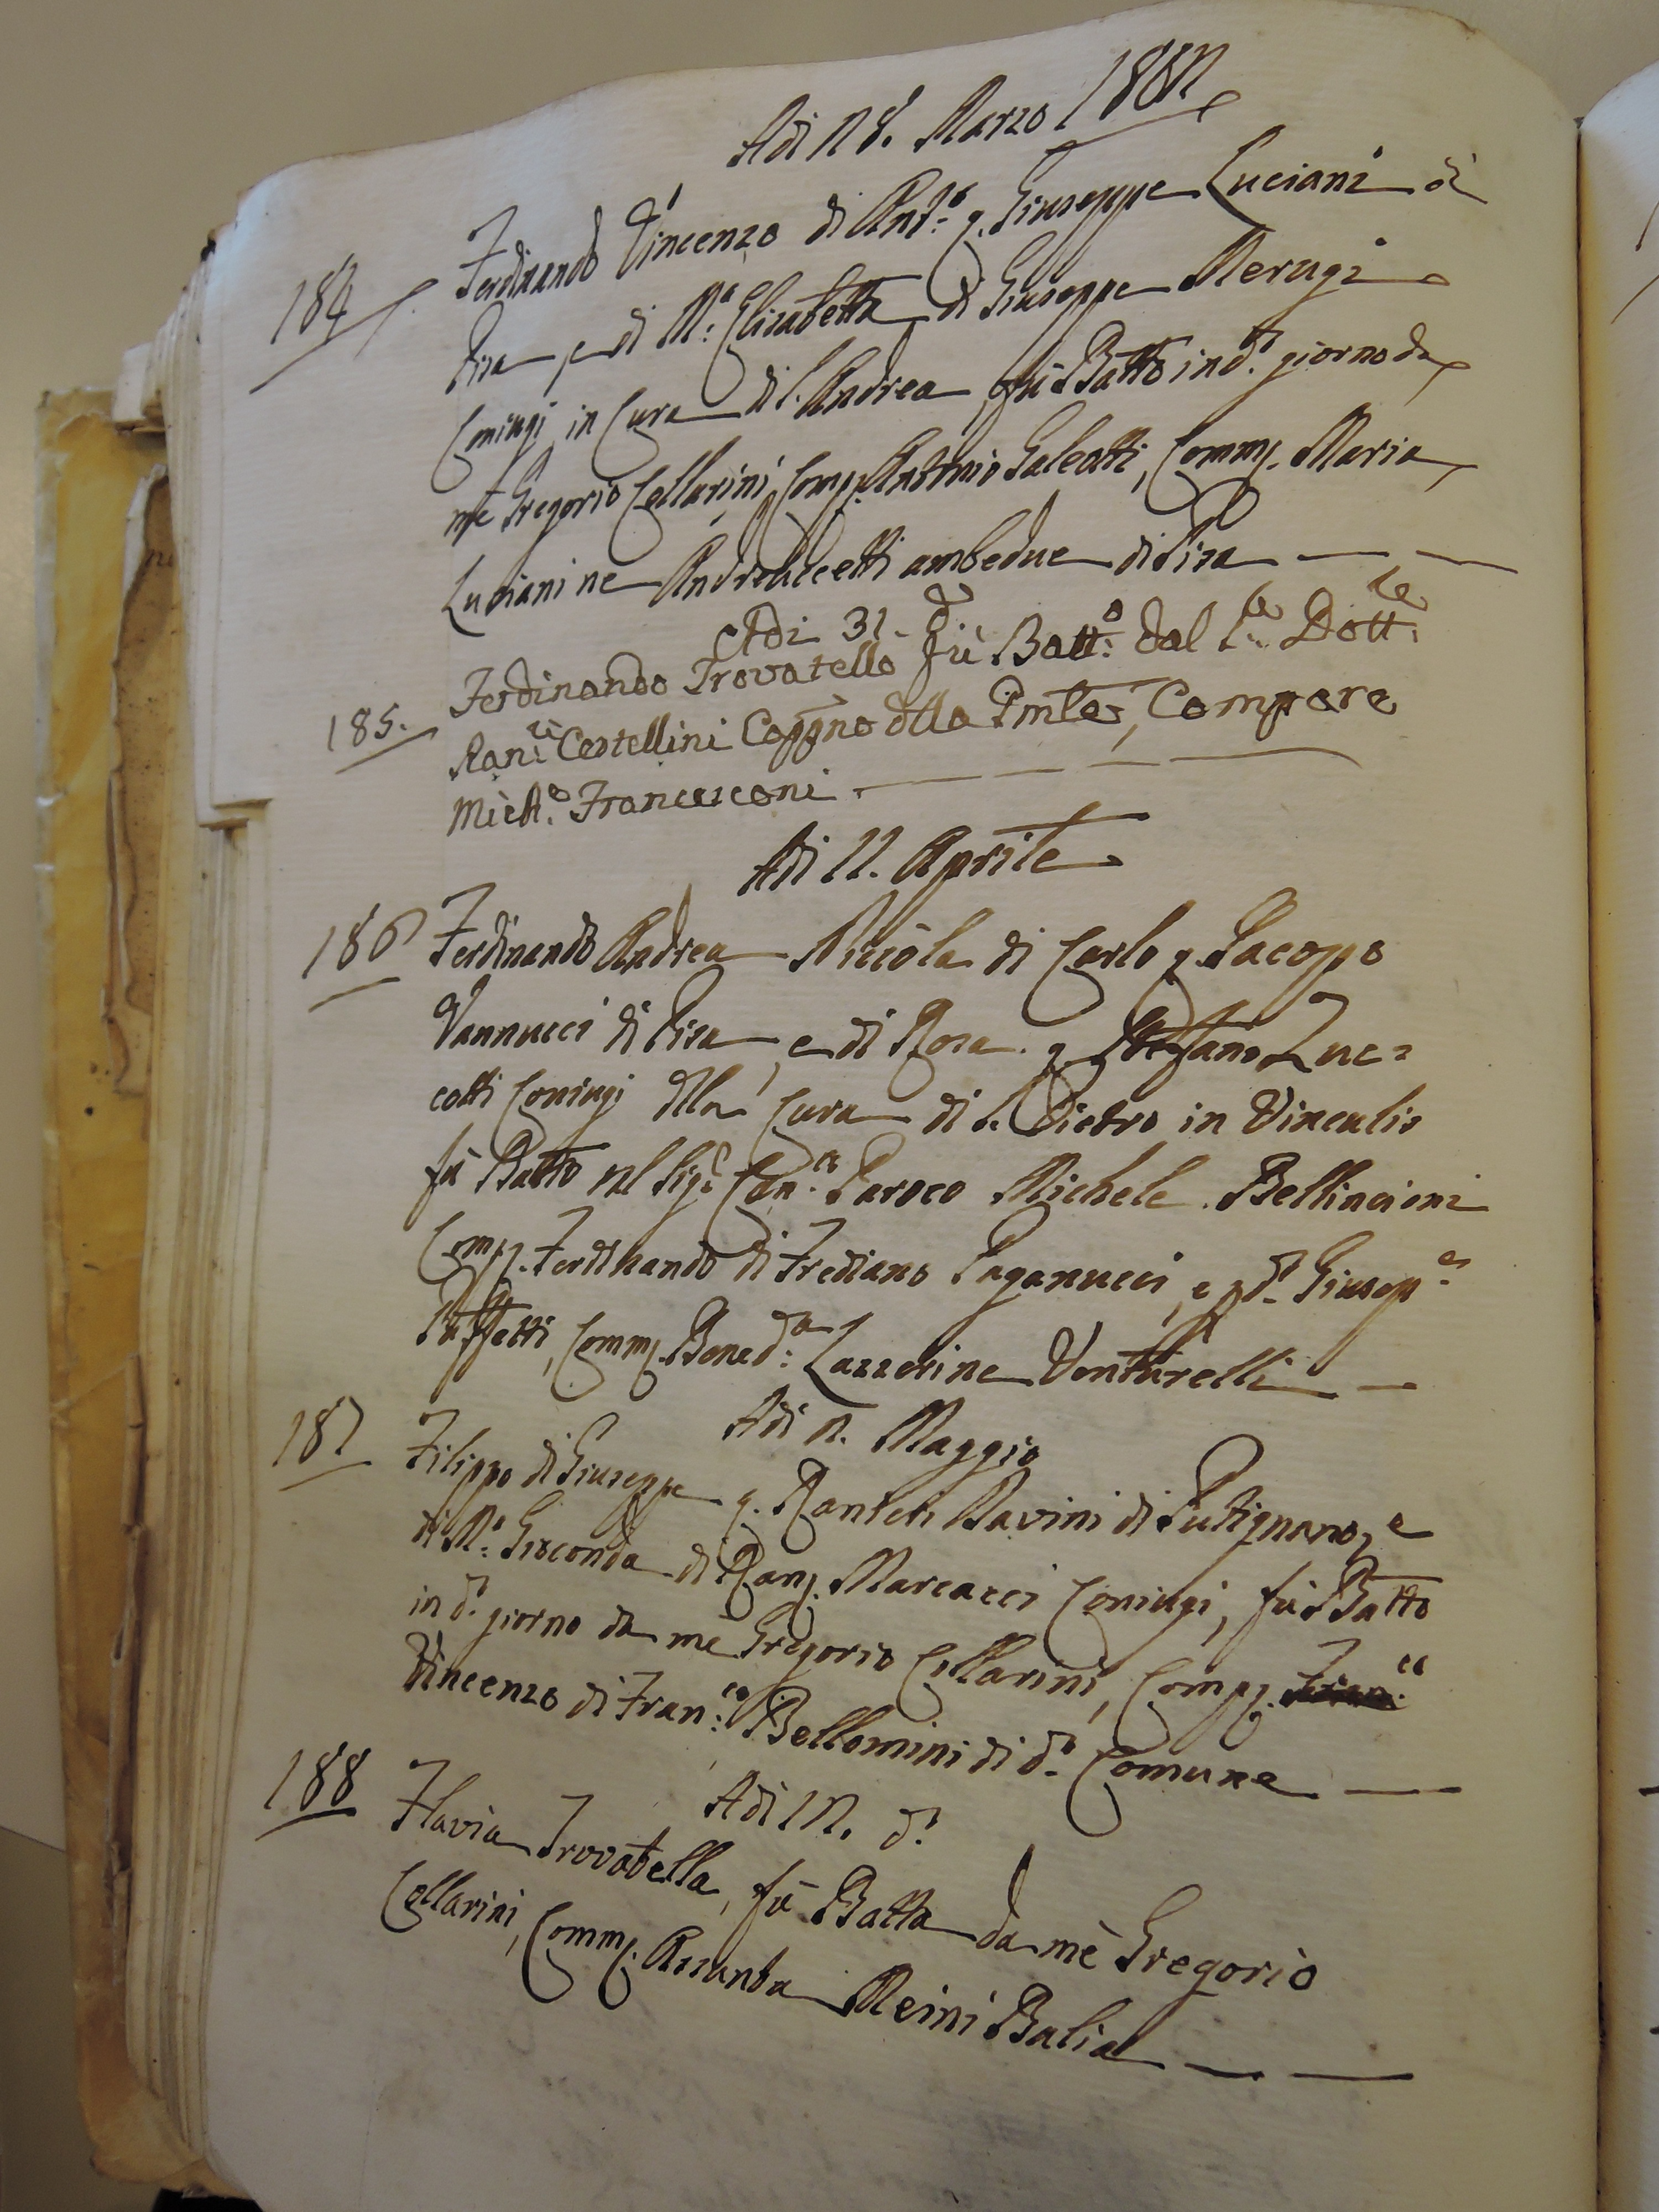 Adi 28. Marzo
184 Ferdinando Vincenzo di Ant.o q. Giuseppe Luciani di
Pisa, e di M.a Elisabetta di Giuseppe Merugi
Coniugi in Cura di S. Andrea, fù Batto in d.o giorno da
me Gregorio Cellarini, Comp. Antonio Galeotti, Comm. Maria
Luciani ne Andreuccetti ambedue di Pisa
Adi 31. d.o
185. Ferdinando Trovatello fù Batt.o dal S.re Dott.re
Ran.ri Castellini Capp̃no dlla Pmle, Compare
Mich.e Francesconi.
Adi 11. Aprile
186 Ferdinando Andrea Niccola di Carlo q. Jacopo
Vannucci di Pisa, e di Rosa q. Stefano Luc=
cotti Coniugi dlla Cura di S. Pietro in Vinculis
fù Batto dal Sig.r Can.co Paroco Michele Bellincioni
Comp. Ferdinando di Frediano Paganucci, e p d.o Giusep.e
Puffetti, Comm. Bened.a Lazzerine Venturelli
Adi 2. Maggio
187 Filippo di Giuseppe q. Ranieri Bavini di Putignano, e
di M.a Gioconda di Ran. Marcacci Coniugi, fù Batto
in d.o giorno da me Gregorio Cellarini, Comp.
Vincenzo di Fran.co Bellomini di d.o Comune
Adi 12. d.o
188 Flavia Trovatella, fù Batta da mè Gregorio
Cellarini, Comm. Assunta Meini Balia